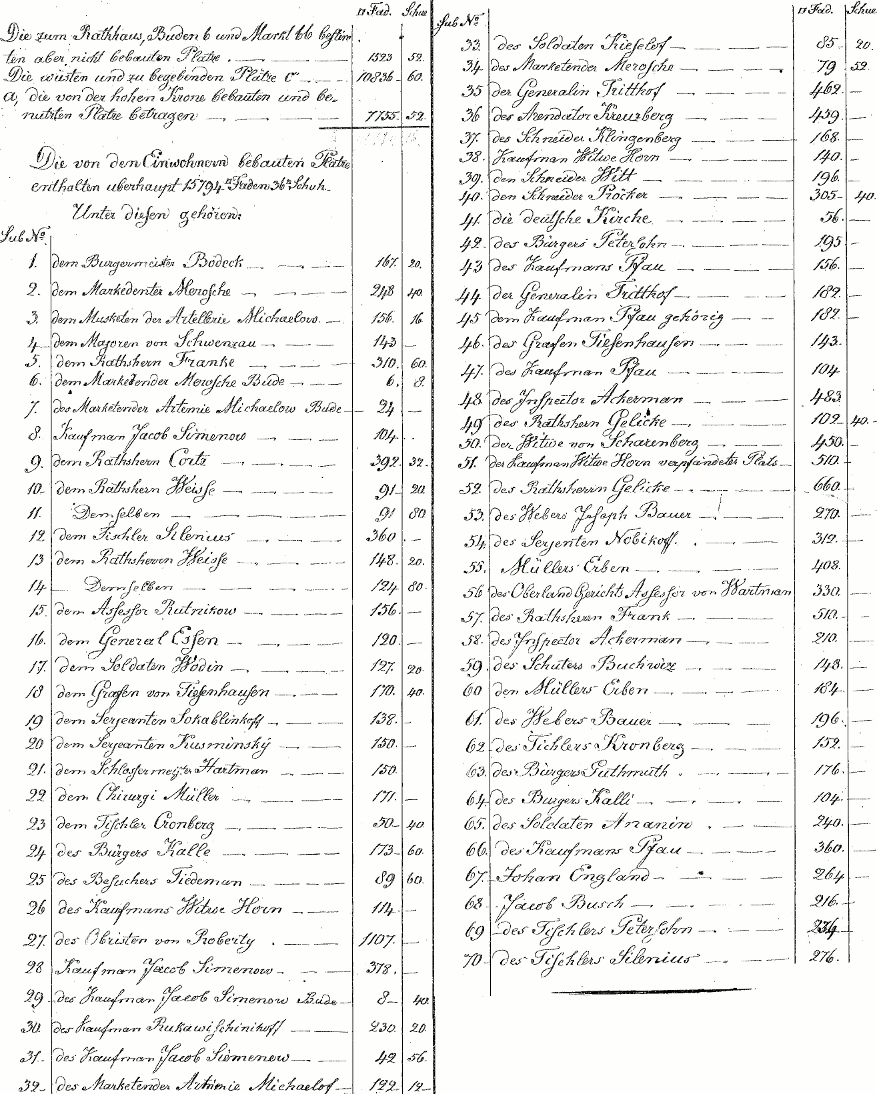 □ Fad. Schue
Die zum Rathhaus, Buden 6 und Markt 66 bestim
ten aber nicht bebauten Plätze . — 1523 52.
Die wüsten und zu begebenden Plätze C — 10836 — 60.
a, die von der hohen Krone bebauten und be-
nutzten Plätze betragen — 7755. 52.
Die von den Einwohnern bebauten Plätze
enthalten überhaupt 15794 □ Faden 36 □ Schuh.
Unter diesen gehören:
Sub No
1. dem Burgermeister Bodeck — 167. 20.
2. dem Markedenter Merosche — 248 40.
3. dem Musketen der Artellerie Michaelows — 156. 16
4. dem Majoren von Schwenzau — 143 —
5. dem Rathshern Franke — 310. 60.
6. dem Markedender Merosche Bude — 6. 8.
7. des Marketender Artemie Michaelow Bude — 24 —
8. Kaufman Jacob Simenow — 104.
9. dem Rathshern Corts — 392 32.
10. dem Rathshern Weisse — 91 20
11. Demselben — 91 80
12. dem Tischler Silenius — 360
13 dem Rathsherrn Weisse — 148. 20.
14 Demselben — 124 80.
15. dem Assessor Rutnikow — 156. —
16. dem General Essen — 120 —
17. dem Soldaten Wodin — 127. 20
18 dem Grafen von Tiesenhausen — 170. 40.
19 dem Serjeanten Sokablinkoff — 138. —
20 dem Serjeanten Kusminský — 150. —
21. dem Schlossermeister Hartman — 150.
22 dem Chirurgi Müller — 171. —
23 dem Tischler Cronberg — 50 — 40
24 des Bürgers Kalle — 173 60.
25 des Besuchers Tiedeman — 89 60.
26 des Kaufmans Witwe Horn — 114 —
27. des Obristen von Roberty — 1107. —
28 Kaufman Jacob Simenow — 378. —
29 des Kaufman Jacob Simenow Bude — 8 — 40
30. des Kaufman Rukawischinikoff — 230. 20.
31. des Kaufman Jacob Siemenow — 42 56.
32. des Marketender Artimie Michaelof — 122 12 —
□ Fad. Schue
Sub No
33. des Soldaten Kieselof — 85 20.
34. des Marketender Merosche — 79 52.
35 der Generalin Tritthof — 462. —
36 des Arendator Kreuzberg — 439. —
37. des Schneider Klingenberg — 168.
38. Kaufman Witwe Horn — 140. —
39. den Schneider Witt — 196.
40. den Schneider Pröcker — 305 — 40.
41. die deutsche Kirche — 56. —
42. des Bürgers Petersohn — 195 —
43 des Kaufmans Pfau — 156. —
44 der Generalin Tritthof — 182. —
45 dem Kaufman Pfau gehörig — 182. —
46. des Grafen Tiesenhausen — 143.
47. des Kaufman Pfau — 104
48. des Inspector Ackerman — 483
49 des Rathshern Gelicke — 102 40.
50. der Witwe von Scharenberg — 450. —
51. der Kaufman Witwe Horn verpfändeter Plats — 510. —
52. des Rathsherrn Gelicke — 660.
53. des Webers Joseph Bauer — 270.
54. des Serjenten Nobikoff. — 312. —
55. Müllers Erben — 408.
56 des Oberland Gerichts Assessor von Wartman 330.
57. des Rathshern Frank — 510. —
58. des Inspector Ackerman — 210.
59. des Schüters — 148. —
60 den Müllers Erben — 184. —
61. des Webers Bauer — 196. —
62. des Tichlers Kronberg — 152. —
63. des Bürgers Guthmuth . — 176. —
64. des Burgers Kalli — 104. —
65. des Soldaten Ananin . — 240. —
66. des Kaufmans Pfau — 360. —
67. Johan England — 264 —
68 Jacob Busch — 216. —
69 des Tischlers Petersohn —
70 des Tischlers Silenius — 276.